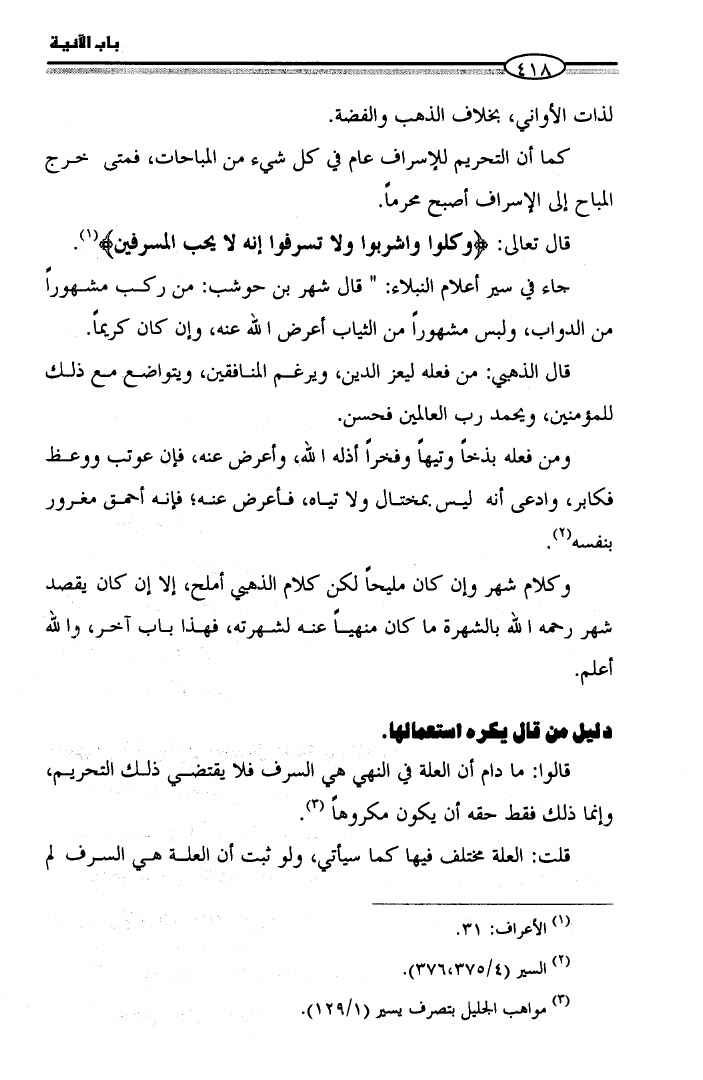 باب الآنية
٤١٨
لذات الأواني، بخلاف الذهب والفضة.
كما أن التحريم للإسراف عام في كل شيء من المباحات، فمتى خرج
المباح إلى الإسراف أصبح محرماً.
قال تعالى: ﴿وكلوا واشربوا ولا تسرفوا إنه لا يحب المسرفين﴾(١).
جاء في سير أعلام النبلاء: " قال شهر بن حوشب: من ركب مشهوراً
من الدواب، ولبس مشهوراً من الثياب أعرض الله عنه، وإن كان كريماً.
قال الذهبي: من فعله ليعز الدين، ويرغم المنافقين، ويتواضع مع ذلك
للمؤمنين، ويحمد رب العالمين فحسن.
ومن فعله بذخاً وتيهاً وفخراً أذله الله، وأعرض عنه، فإن عوتب ووعظ
فكابر، وادعى أنه ليس بمختال ولا تياه، فأعرض عنه؛ فإنه أحمق مغرور
بنفسه(٢).
وكلام شهر وإن كان مليحاً لكن كلام الذهبي أملح، إلا إن كان يقصد
شهر رحمه الله بالشهرة ما كان منهياً عنه لشهرته، فهذا باب آخر، والله
أعلم.
دليل من قال يكره استعمالها.
قالوا: ما دام أن العلة في النهي هي السرف فلا يقتضي ذلك التحريم،
وإنما ذلك فقط حقه أن يكون مكروهاً (٣).
قلت: العلة مختلف فيها كما سيأتي، ولو ثبت أن العلة هي السرف لم
(١) الأعراف: ٣١.
(٢) السير (٣٧٦،٣٧٥/٤).
(٣) مواهب الجليل بتصرف يسير (١٢٩/١).